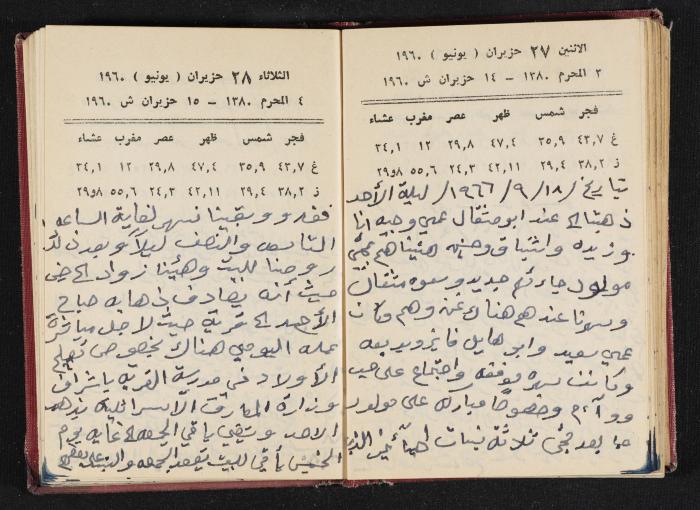 الاثنين ٢٧ حزيران ( يونيو ) ١٩٦٠
٣ المحرم ١٣٨٠ – ١٤ حزيران ش ١٩٦٠
فجر شمس ظهر عصر مغرب عشاء
غ ٤٣,٧ ٣٥,٩ ٤٧,٤ ٢٩,٨ ١٢ ٣٤,١
ز ٣٨,٢ ٢٩,٤ ٤٢,١١ ٢٤,٣ ٥٥,٦ ٢٩و٨
بتاريخ /١٨/ ٩/ ١٩٦٦/ ليلة الأحد
ذهبنا الى عند ابو مثقال عمي وجيه انا
وزيده واشتياق وجنيه هنيناهم بمجيئ
مولود جاءهم جديد وسموه مثقال
وسهرنا عندهم هناك نحن وهم وكان
عمي سعيد وابو هايل فايز ويديعه
وكانت سهره موفقه واجتماع على حب
ووآم وخصوصاً مباركه على مولود
بعد مجئ ثلاثة بنات
الثلاثاء ٢٨ حزيران ( يونيو ) ١٩٦٠
٤ المحرم ١٣٨٠ – ١٥ حزيران ش ١٩٦٠
فجر شمس ظهر عصر مغرب عشاء
غ ٤٣,٧ ٣٥,٩ ٤٧,٤ ٢٩,٨ ١٢ ٣٤,١
ز ٣٨,٢ ٢٩,٤ ٤٢,١١ ٢٤,٣ ٥٥,٦ ٢٩و٨
وبقينا نسهر لغاية الساعه
التاسعه والنصف ليلاً وبعدئذ
روحنا للبيت وهيئنا زواد
حيث أنه يصادف ذهابه صباح
الأحد الى قرية حيث لاجل مباشرة
عمله اليومي هناك بخصوص تعليم
الأولاد في مدرسة القرية باشراف
وزارة المعارف الاسرائيلية يذهب
الاحد ويبقى باقي الجمعه لغاية يوم
الخميس يأتي للبيت يقعد الجمعه والسبت